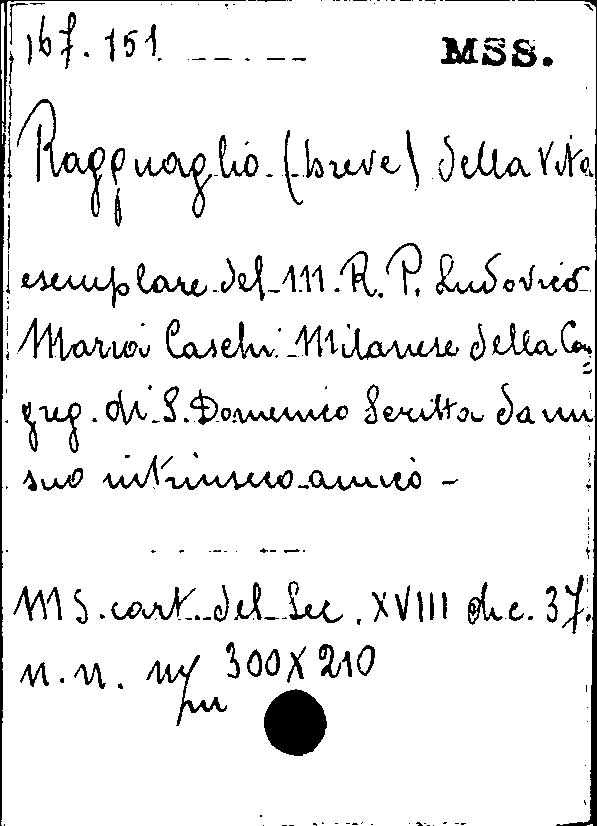 167. 151 MSS.
Ragguaglio (breve) della Vita
esemplare del M. R. P. Ludovico
Maria Caschi Milanese della Con=
greg. di S. Domenico Scritta da un
suo intrinseco amico -
MS. cart. del Sec. XVIII di c. 37.
n. n. 300 X 210